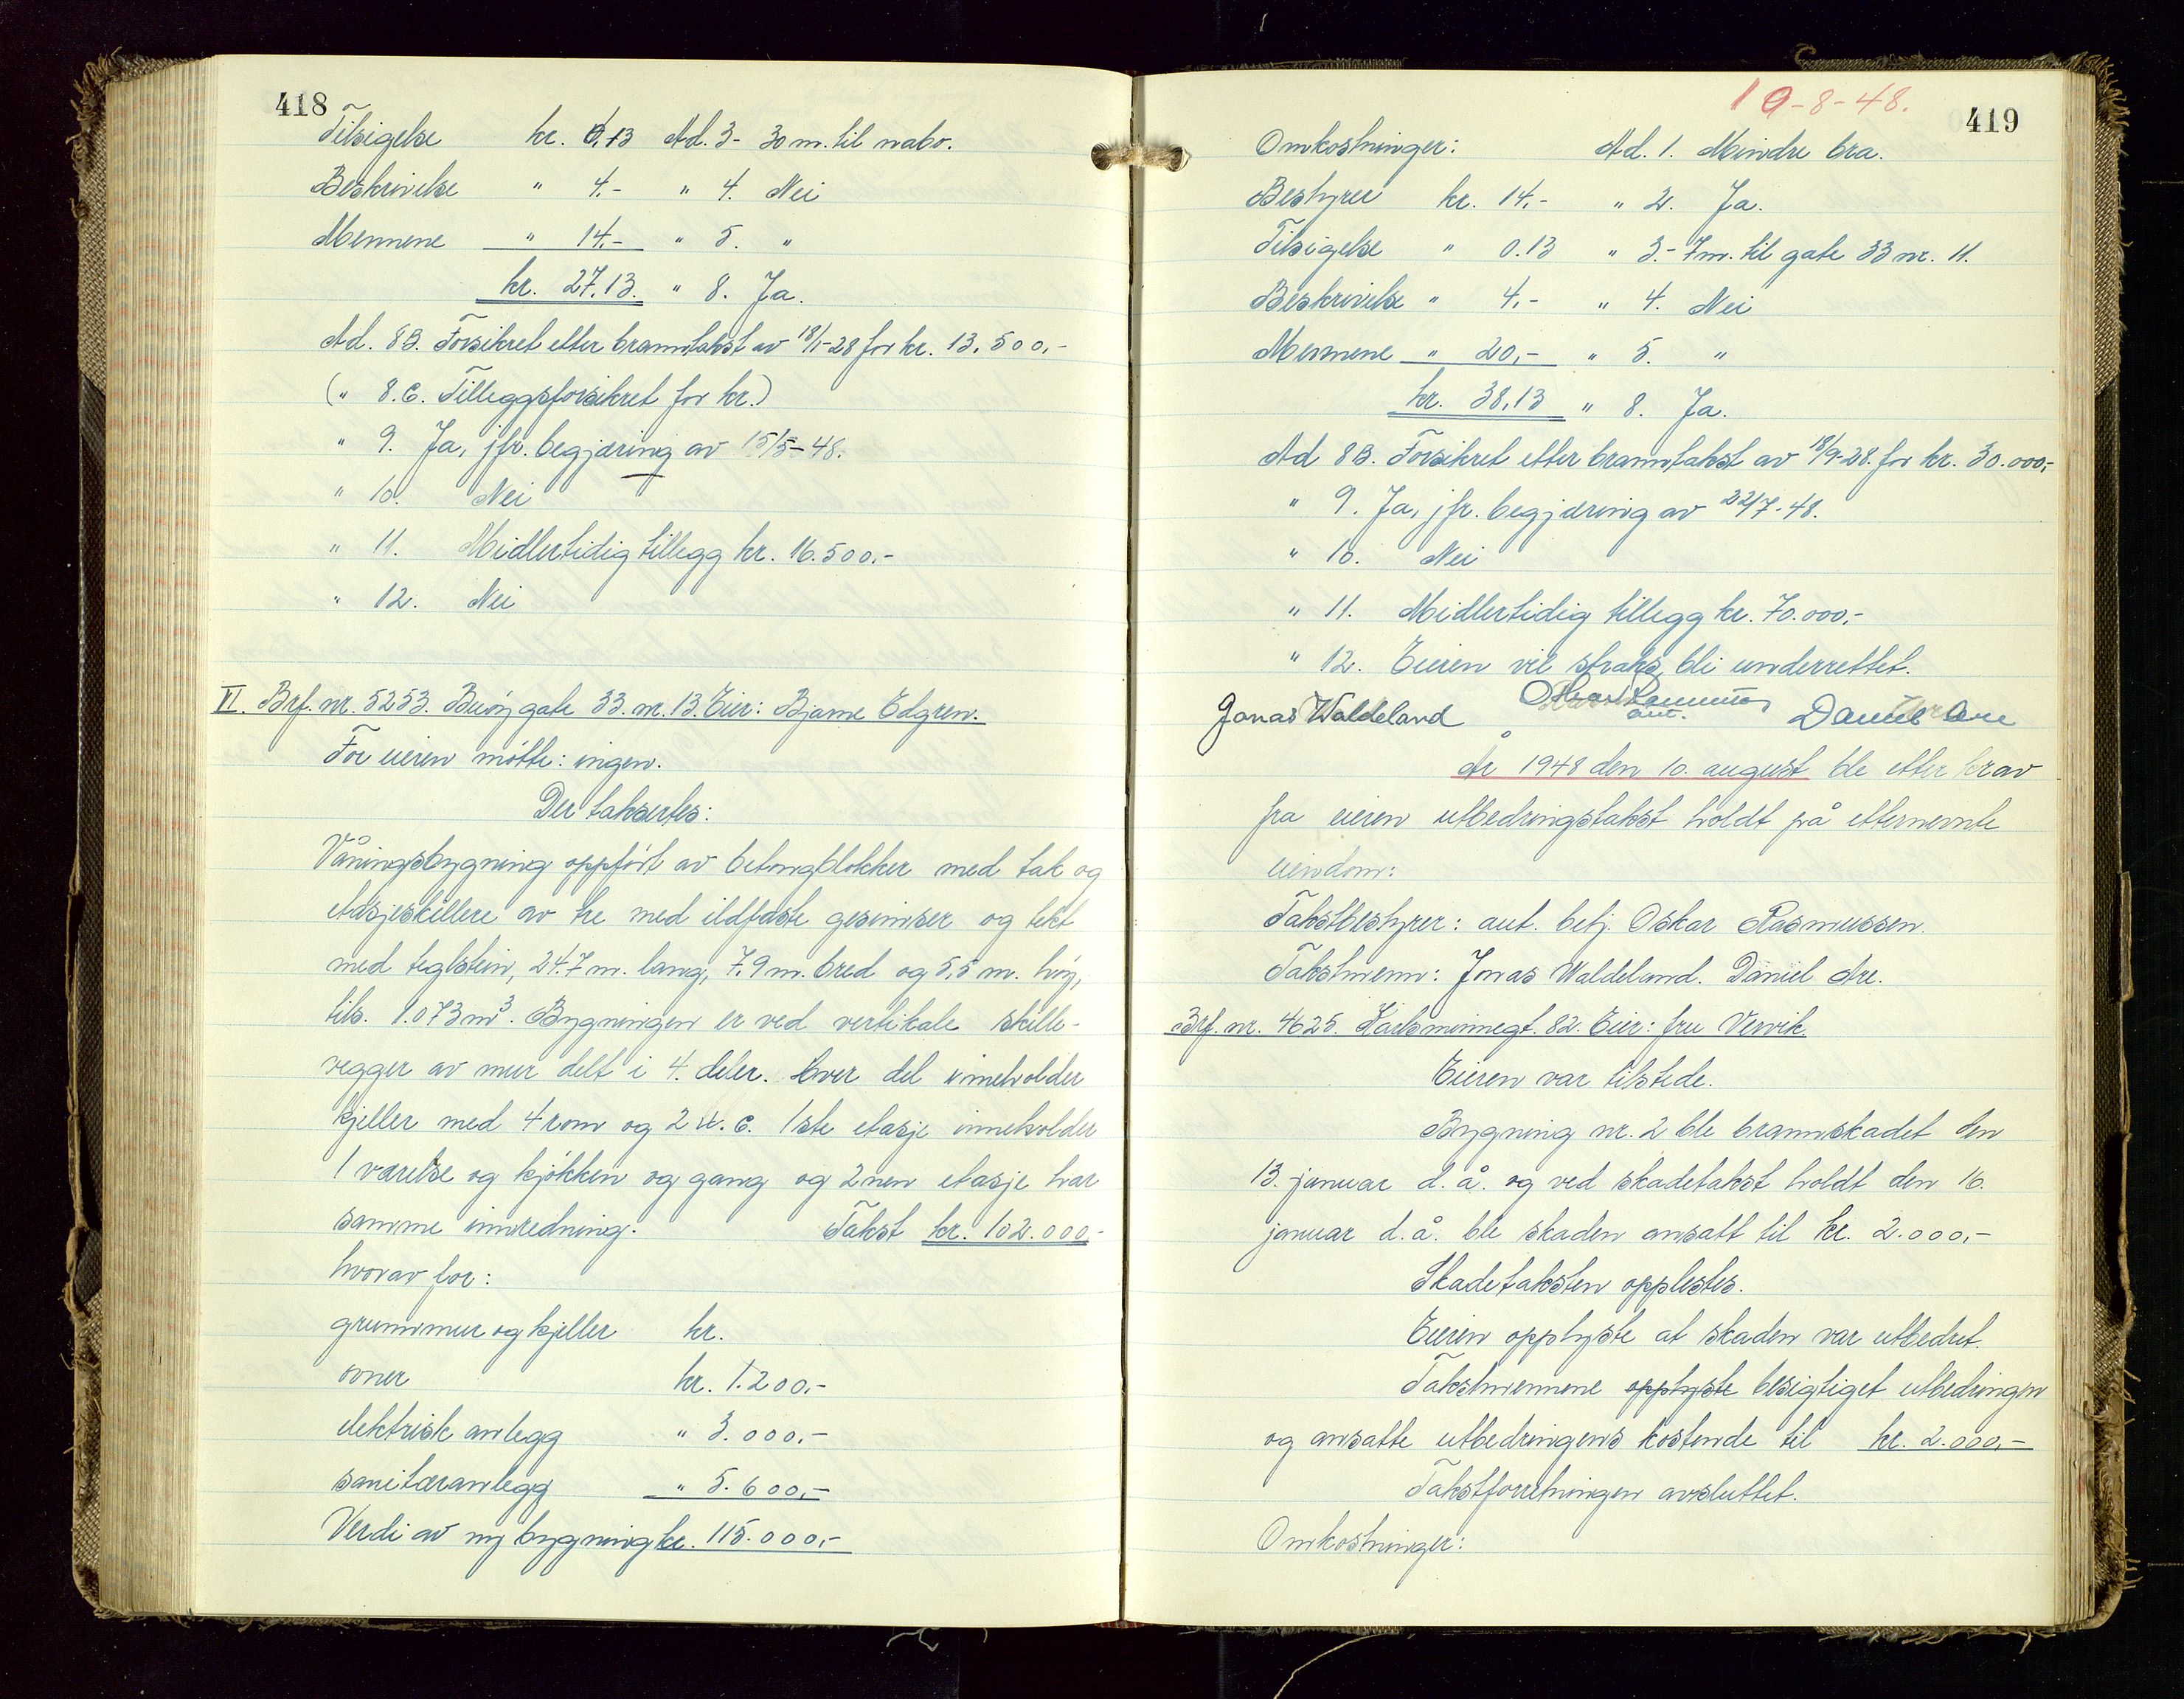 418
Tilsigelse kr. 0,13 Ad. 3 - 30 m. til nabo.
Beskrivelse " 4.- " 4. Nei
Mennene " 14.- " 5. "
kr. 27.13. " 8. Ja.
Ad. 8B. Forsikret etter branntakst av 18/1-28 for kr. 13.500,-
(" 8.C. Tilleggsforsikret for kr.)
" 9. Ja, jfr. begjæring av 15/5-48.
" 10. Nei
" 11. Midlertidig tillegg kr. 16.500.-
" 12. Nei
VI. Brf. nr. 5253. Buøy gate 33. nr. 13. Eier: Bjarne Edgren.
For eieren møtte: ingen.
Der taksertes:
Våningsbygning oppført av betongblokker med tak og
etasjeskillere av tre med ildfaste gesimser og tekt
med teglstein, 24.7 m. lang, 7,9 m. bred og 5,5 m. høy,
tils. 1.073 m³. Bygningen er ved vertikale skille-
vegger av mur delt i 4. deler. hver del inneholder
kjeller med 4 rom og 2 w.c. 1ste etasje inneholder
1 værelse og kjøkken og gang og 2nen etasje har
samme innredning. Takst kr. 102.000,-
hvorav for:
grunnmur og kjeller kr.
ovner kr. 1.200,-
elektrisk anlegg " 3.000.-
sanitæranlegg " 5.600,-
Verdi av ny bygning kr. 115.000,-
10-8-48.
419
Omkostninger: Ad. 1. Mindre bra.
Bestyrer kr. 14,- " 2. Ja.
Tilsigelse " 0.13 " 3.- 7 m. til gate 33 nr. 11.
Beskrivelse " 4,- " 4. Nei
Mennene " 20,- " 5. "
kr. 38,13 " 8. Ja.
Ad 8B. Forsikret etter branntakst av 18/9-28. for kr. 30.000,-
" 9. Ja, jfr. begjæring av 22/7-48.
" 10. Nei
" 11. Midlertidig tillegg kr. 70.000,-
" 12. Eieren vil straks bli underrettet.
Jonas Waldeland Oskar Rasmussen Daniel Are
aut.
År 1948 den 10. august ble etter krav
fra eieren utbedringstakst holdt på etternevnte
eiendom:
Takstbestyrer: aut. betj. Oskar Rasmussen.
Takstmenn: Jonas Waldeland. Daniel Are.
Brf. nr. 4625. Karlsminnegt. 82. Eier: fru Vervik.
Eieren var tilstede.
Bygning nr. 2 ble brannskadet den
13. januar d.å. og ved skadetakst holdt den 16.
januar d.å. ble skaden ansatt til kr. 2.000,-
Skadetaksten opplestes.
Eieren opplyste at skaden var utbedret.
Takstmennene opplyste besigtiget utbedringen
og ansatte utbedringens kostende til kr. 2.000,-
Takstforretningen avsluttet.
Omkostninger: